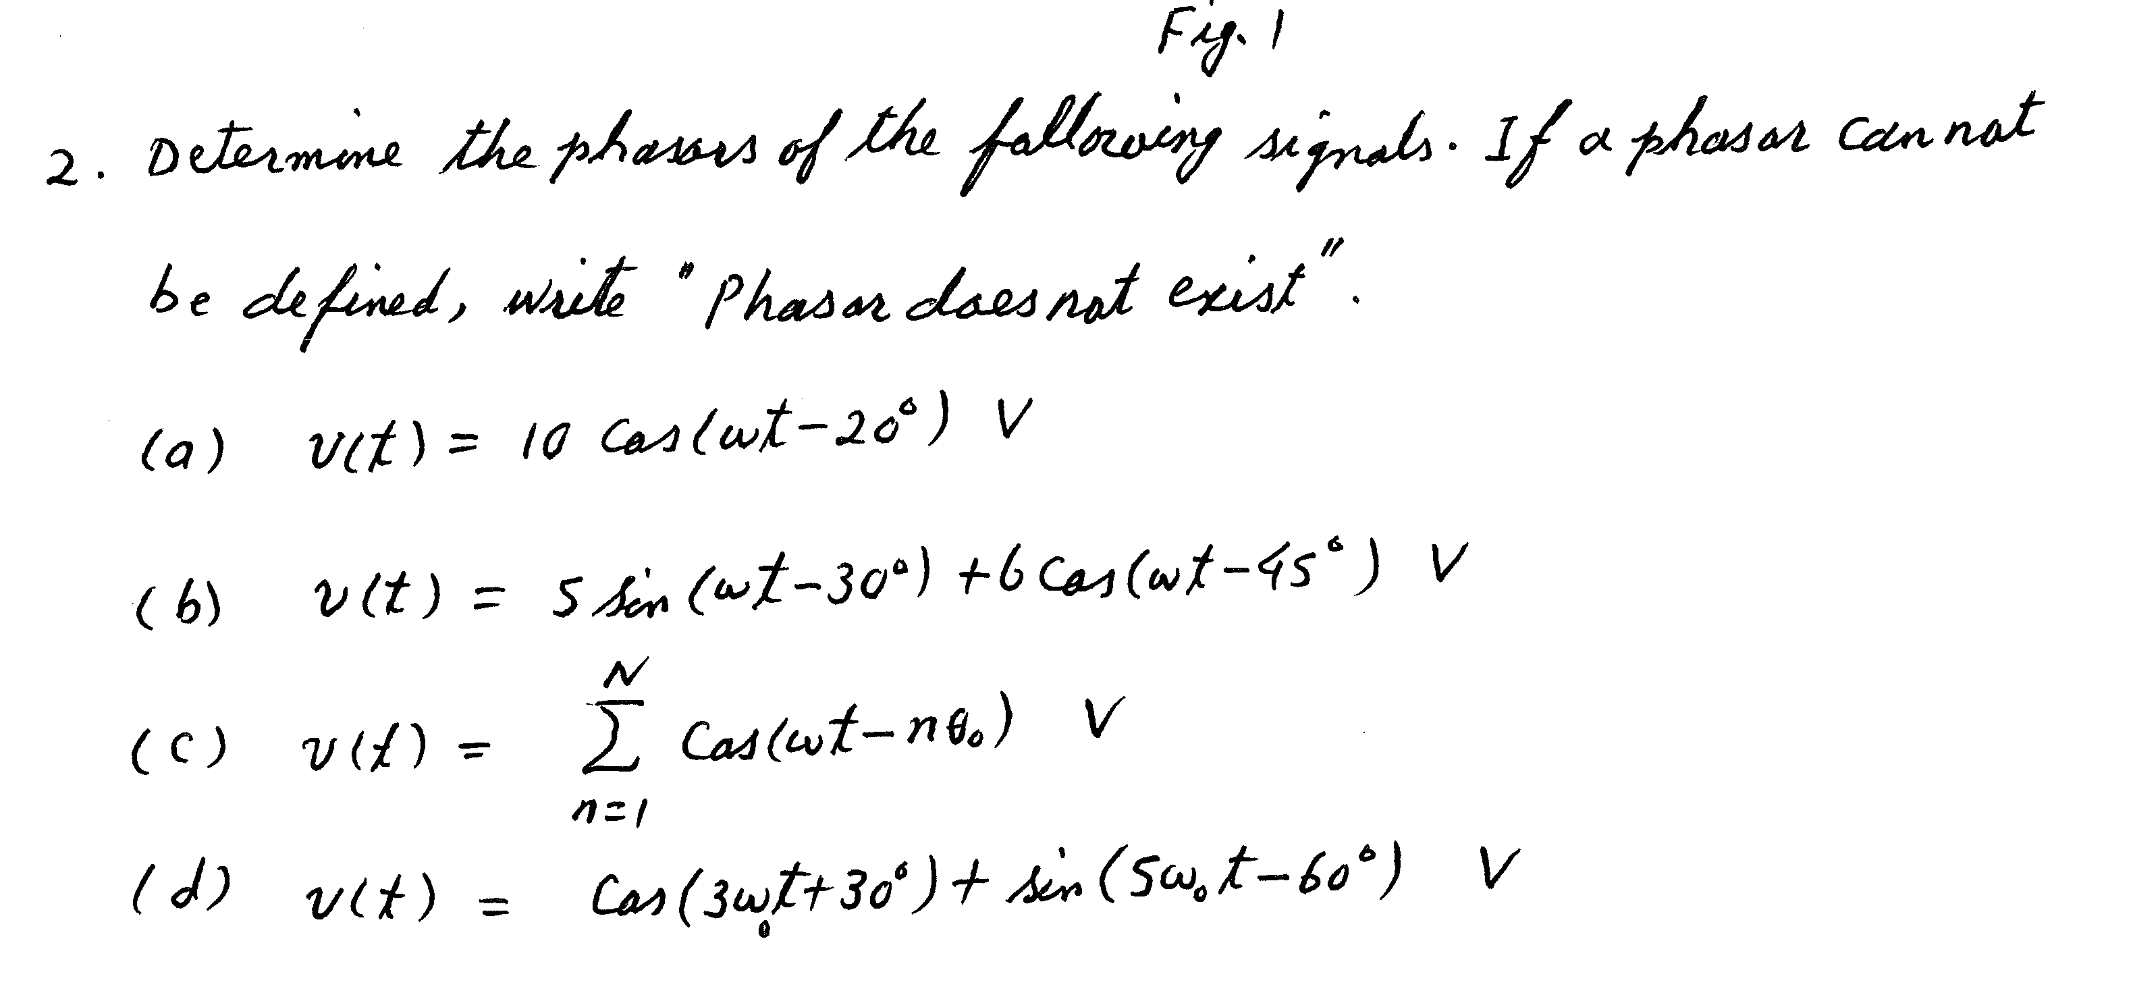 Fig. 1
2. Determine the phasors of the following signals. If a phasor cannot
be defined, write "Phasor does not exist".
(a) v(t) = 10 Cos(ωt-20°) V
(b) v(t) = 5 sin(ωt-30°) + 6 Cos(ωt-45°) V
(c) v(t) = \sum_{n=1}^{N} Cos(ωt-nθ₀) V
(d) v(t) = Cos(3ω₀t+30°) + sin(5ω₀t-60°) V